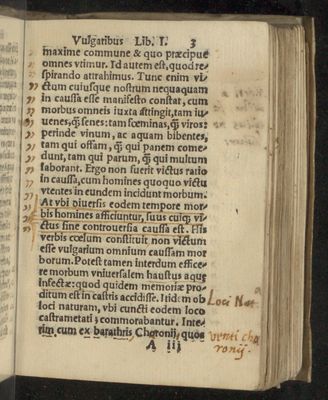 Vulgatibus Lib. I. 3
maxime commune & quo præcipue
omnes vtimur. Id autem est, quod re-
spirando attrahimus. Tunc enim vi-
ctum cuiusque nostrum nequaquam
in caussa esse manifesto constat, cum
morbus omneis iuxta attingit, tam iu-
uenes, q̃ senes: tam fœminas, q̃ viros:
perinde vinum, ac aquam bibentes,
tam qui offam, q̃ qui panem come-
dunt, tam qui parum, q̃ qui multum
laborant. Ergo non fuerit victus ratio
in caussa, cum homines quoquo victu
vtentes in eundem incidunt morbum.
At vbi diuersis eodem tempore mor-
bis homines afficiuntur, suus cuiq; vi-
ctus sine controuersia caussa est. His
verbis cœlum constituit non victum
esse vulgarium omnium caussam mor
borum. Potest tamen interdum effice-
re morbum vniuersalem haustus aquæ
infectæ: quod quidem memoriæ pro-
ditum est in castris accidisse. Itidem ob
loci naturam, vbi cuncti eodem loco
castrametati commorabantur. Inte-
rim cum ex barathris, Charonijs, quos
A iij
Loci Nat
venti cha
ronij.